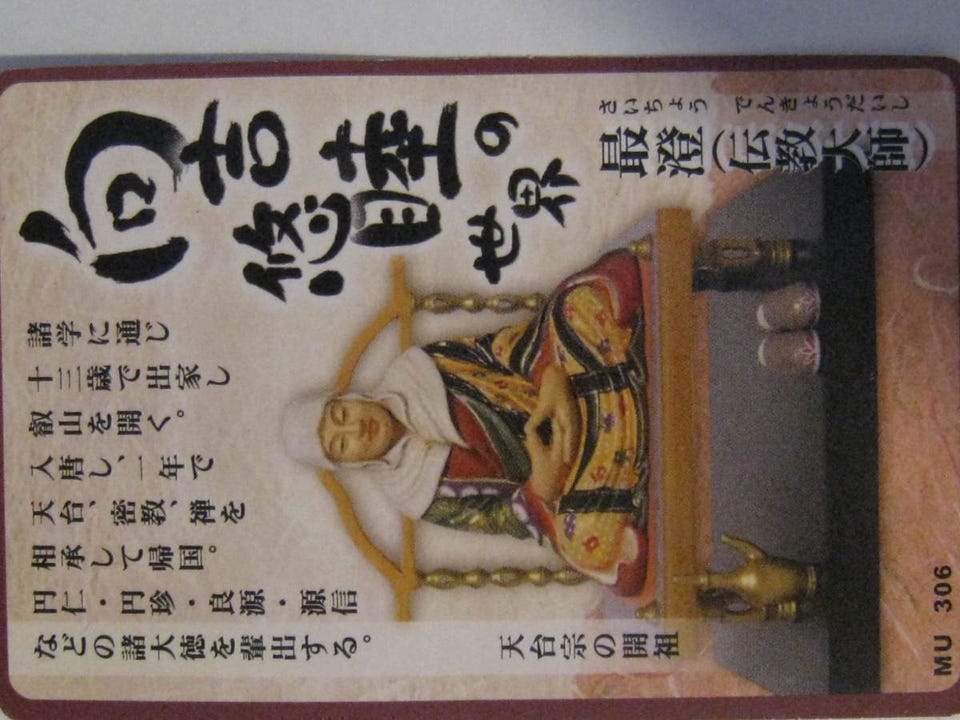 向吉
悠睦の
世界
さいちょう でんぎょうだいし
最澄(伝教大師)
諸学に通じ
十三歳で出家し
叡山を開く。
入唐し、一年で
天台、密教、禅を
相承して帰国。
円仁・円珍・良源・源信
などの諸大徳を輩出する。
天台宗の開祖
MU 306